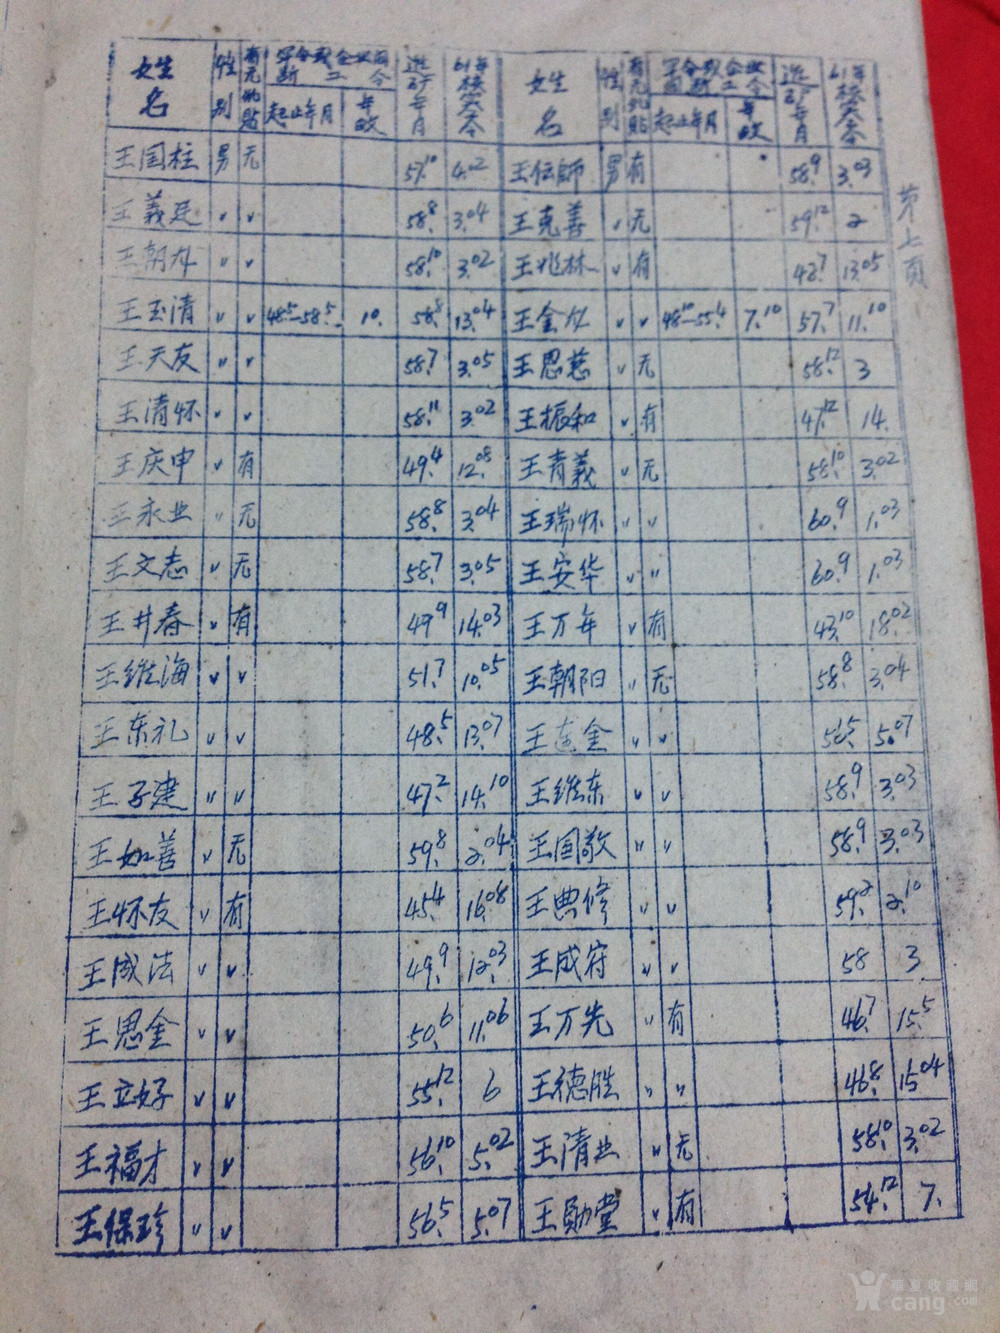 姓名 性别 有无 起止年月 年 进矿年月 61年 姓名 性别 有无 起止年月 年 进矿年月 61年
王国柱 男 无 57.10 4.02 王伝師 男 有 58.9 3.03
王義廷 〃 〃 58.8 3.04 王克善 〃 无 59.12 2
王朝 〃 〃 58.10 3.02 王兆林 〃 有 48.7 13.05
王玉清 〃 〃 48.5—58.5 10. 58.8 13.04 王金 〃 〃 48.10—55.4 7.10 57.7 11.10
王天友 〃 〃 58.7 3.05 王思慈 〃 无 58.12 3
王清怀 〃 〃 58.11 3.02 王振和 〃 有 47.12 14.
王庆申 〃 有 49.4 12.08 王青義 〃 无 58.10 3.02
王永业 〃 无 58.8 3.04 王瑞怀 〃 〃 60.9 1.03
王文志 〃 无 58.7 3.05 王安华 〃 〃 60.9 1.03
王井春 〃 有 49.9 14.03 王万年 〃 有 43.10 18.02
王维海 〃 〃 51.7 10.05 王朝阳 〃 无 58.8 3.04
王东礼 〃 〃 48.5 13.07 王连金 〃 〃 56.5 5.07
王子建 〃 〃 47.2 14.10 王维东 〃 〃 58.9 3.03
王如善 〃 无 59.8 2.04 王国敬 〃 〃 58.9 3.03
王怀友 〃 有 45.4 16.08 王典修 〃 〃 59.2 2.10
王成法 〃 〃 49.9 12.03 王成府 〃 〃 58 3
王思金 〃 〃 50.6 11.06 王万先 〃 有 46.7 15.5
王立好 〃 〃 55.12 6 王德胜 〃 〃 46.8 15.04
王福才 〃 〃 56.10 5.02 王清业 〃 无 58.10 3.02
王保珍 〃 〃 56.5 5.07 王勋堂 〃 有 54.12 7.
華夏收藏網
cang.com